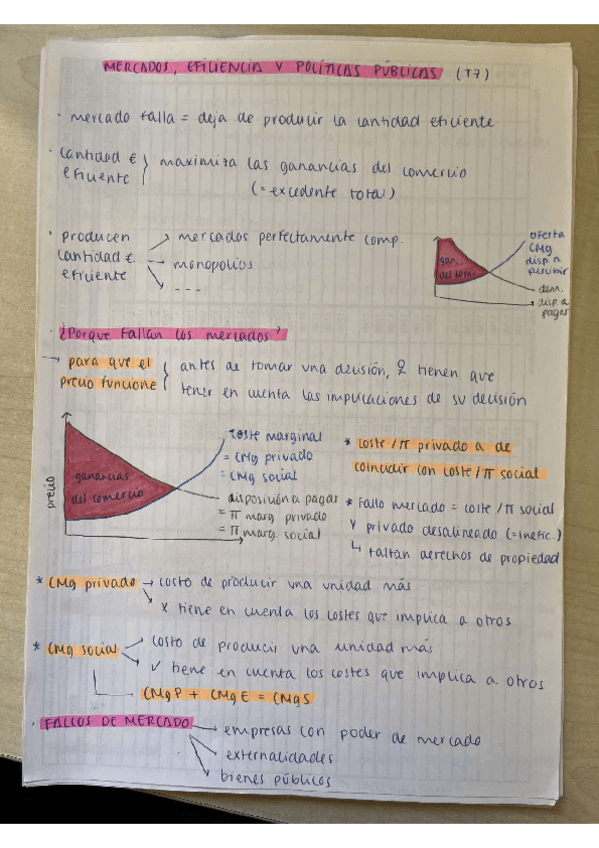 MERCADOS, EFICIENCIA Y POLÍTICAS PÚBLICAS (T7)
· mercado falla = deja de producir la cantidad eficiente
· Cantidad € eficiente } maximiza las ganancias del comercio
(= excedente total)
· producen cantidad € eficiente
→ mercados perfectamente comp.
→ monopolios
→ ---
oferta
CMg
disp a
percibir
gan.
del com.
dem.
disp. a
pagar
· ¿Porque fallan los mercados?
→ para que el precio funcione
antes de tomar una decisión, tienen que
tener en cuenta las implicaciones de su decisión
precio
ganancias
del comercio
coste marginal
= CMg privado
= CMg social
disposición a pagar
= π marg privado
= π marg. social
* coste/π privado a de
coincidir con coste/π social
* Fallo mercado = coste/π social
y privado desalineado (=inefic.)
↳ faltan derechos de propiedad
* CMg privado → costo de producir una unidad más
x tiene en cuenta los costes que implica a otros
* CMg social → costo de producir una unidad más
✓ tiene en cuenta los costes que implica a otros
CMgP + CMgE = CMgS
· FALLOS DE MERCADO → empresas con poder de mercado
→ externalidades
→ bienes públicos